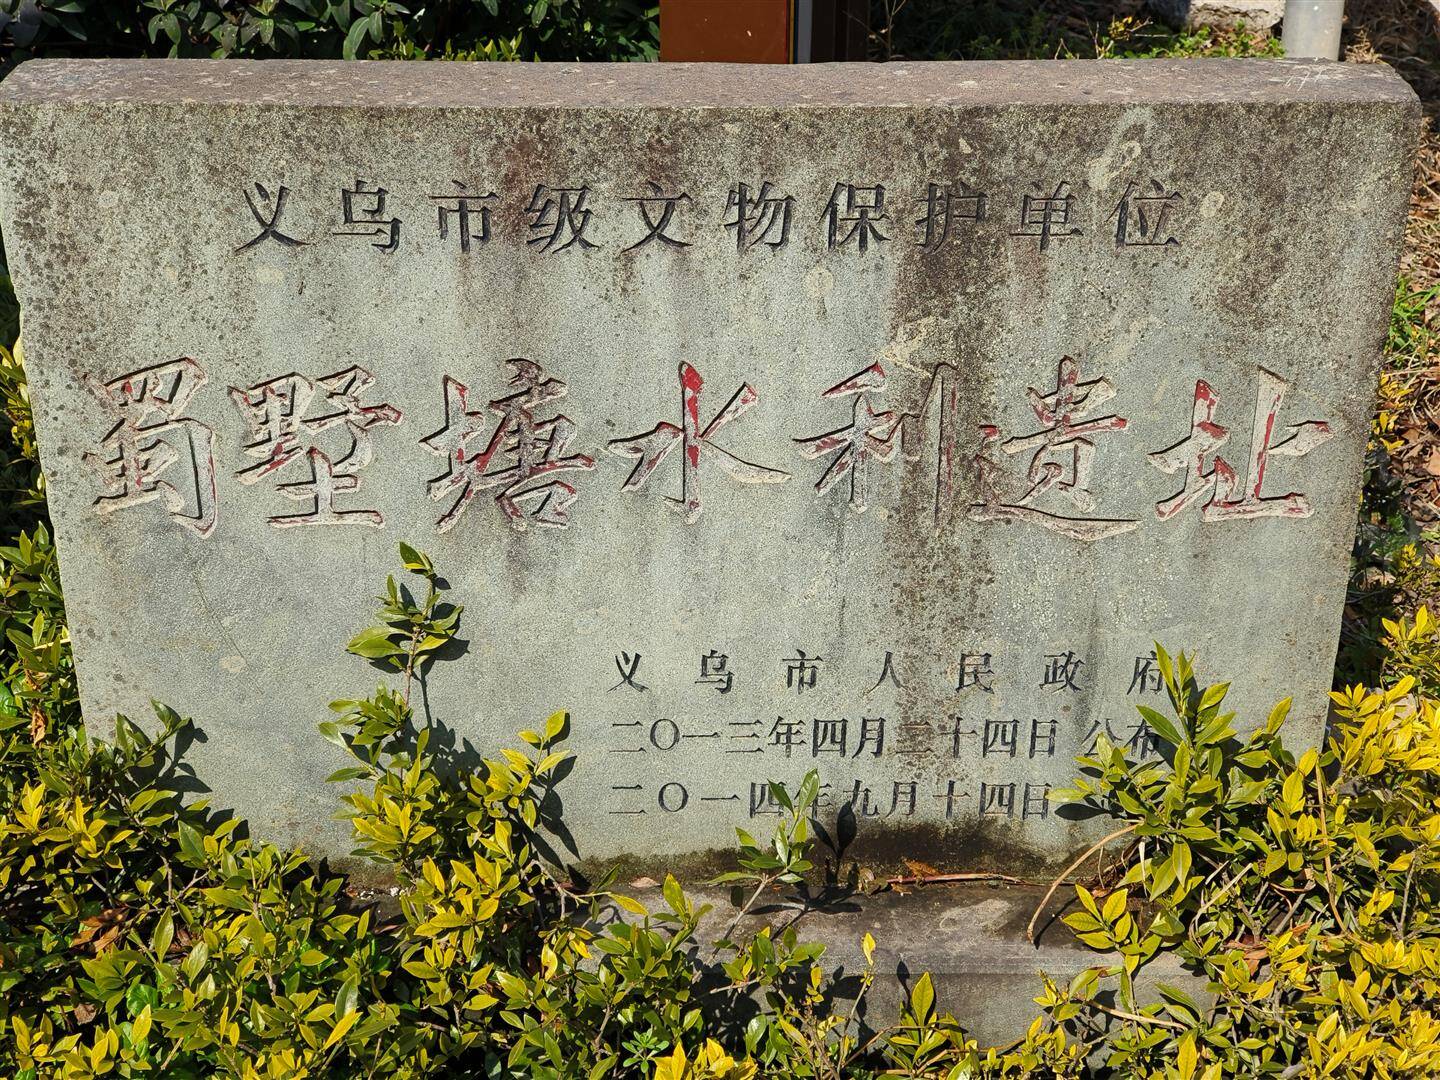 义乌市级文物保护单位
蜀墅塘水利遗址
义乌市人民政府
二〇一三年四月二十四日 公布
二〇一四年九月十四日